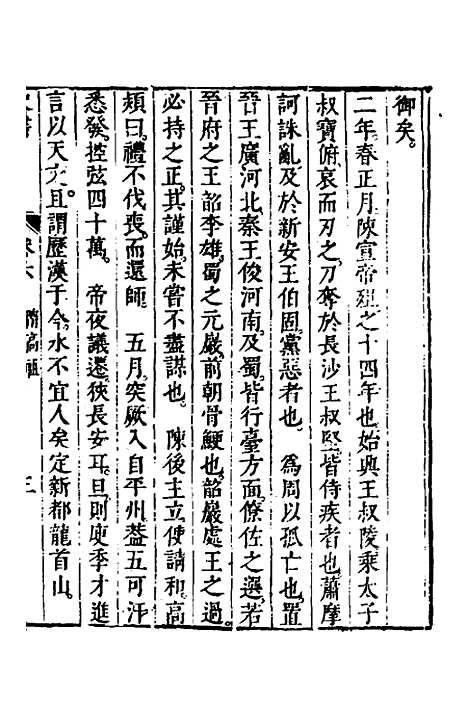 御矣。
二年春正月陳宣帝殂之十四年也始興王叔陵乘太子
叔寶俯哀而刃之刀奪於長沙王叔堅皆侍疾者也蕭摩
訶誅亂及於新安王伯固黨惡者也　為周以孤亡也置
晉王廣河北秦王俊河南及蜀皆行臺方面僚佐之選若
晉府之王韶李雄蜀之元巖前朝骨鯁也韶巖處王之過
必持之正其謹始未嘗不盡謀也　陳後主立使請和高
熲曰禮不伐喪而還師　五月突厥入自平州葢五可汗
悉發控弦四十萬　帝夜議遷狹長安耳旦則庾季才進
言以天文且謂歷漢于今水不宜人矣定新都龍首山。
卷六　隋高祖　三